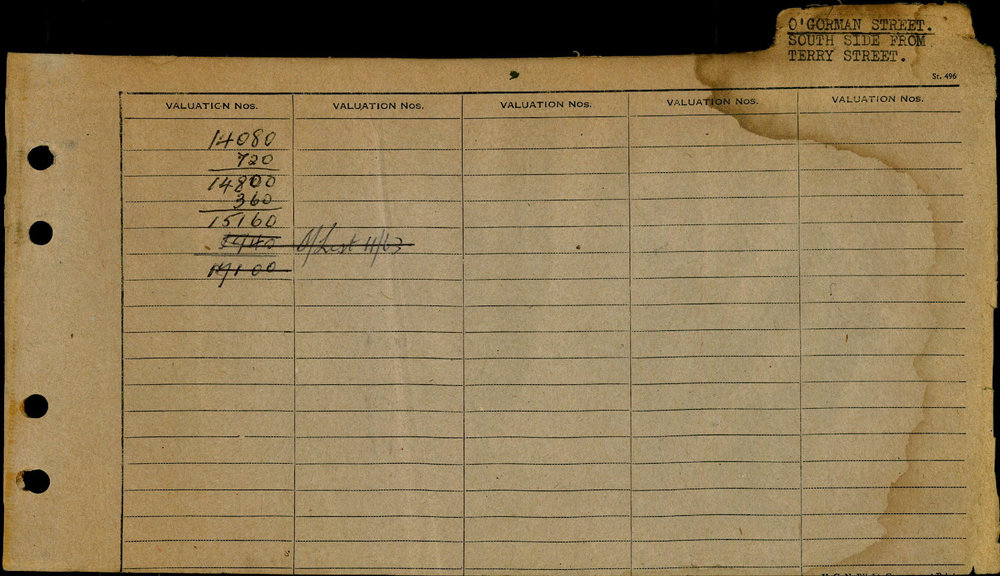 O'GORMAN STREET.
SOUTH SIDE FROM
TERRY STREET.
St. 496
VALUATION Nos. VALUATION Nos. VALUATION Nos. VALUATION Nos. VALUATION Nos.
14080
720
14800
360
15160
3940 O/List 11/63
19100